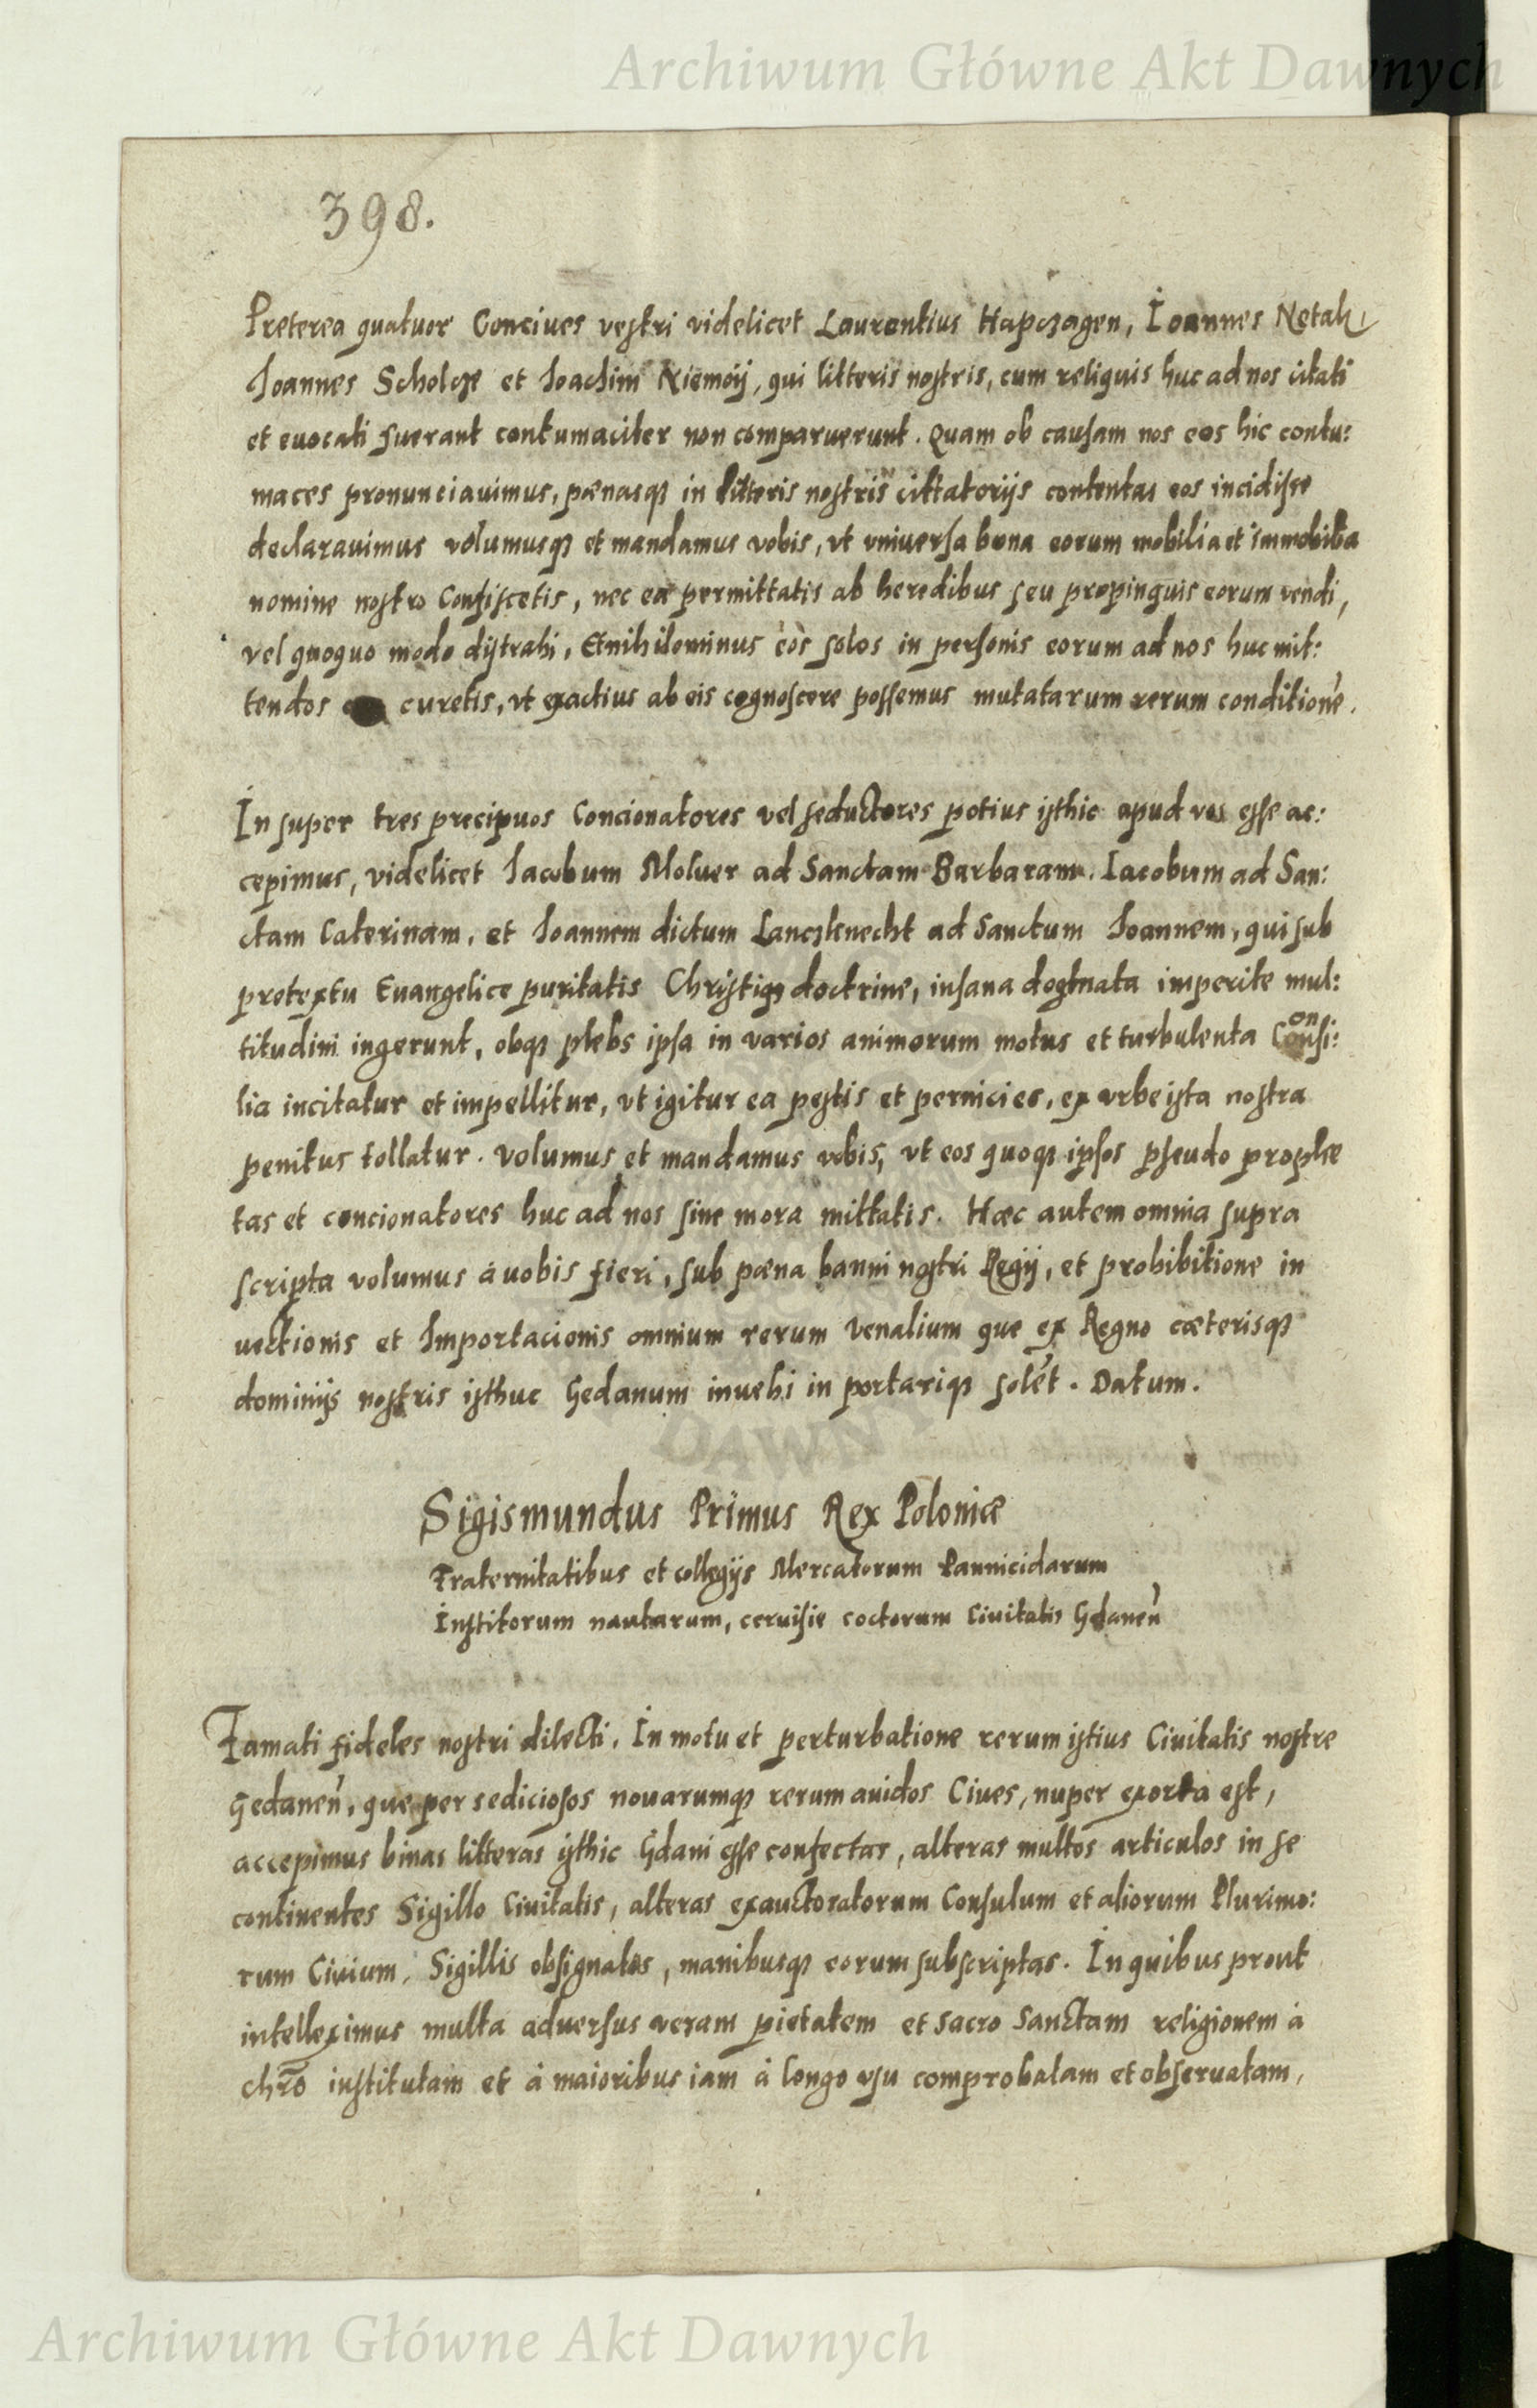 Archiwum Główne Akt Dawnych
398.
Preterea quatuor Conciues vestri videlicet Laurentius Hapczagen, Ioannes Netak,
Ioannes Scholcze et Ioachim Niemoij, qui litteris nostris, cum reliquis huc ad nos citati
et euocati fuerant contumaciter non comparuerunt. Quam ob causam nos eos hic contu:
maces pronunciauimus, pænasq3 in litteris nostris cittatorijs contentas eos incidisse
declarauimus volumusq3 et mandamus vobis, vt vniuersa bona eorum mobilia et immobilia
nomine nostro Confiscetis, nec ea permittatis ab heredibus seu propinquis eorum vendi,
vel quoquo modo distrahi, Et nihilominus eos solos in personis eorum ad nos huc mit:
tendos curetis, vt exactius ab eis cognoscere possemus mutatarum rerum conditione͂.
In super tres precipuos Concionatores vel seductores potius isthic apud vos esse ac:
cepimus, videlicet Iacobum Moluer ad Sanctam Barbaram. Iacobum ad San:
ctam Caterinam, et Ioannem dictum Lanczknecht ad Sanctum Ioannem, qui sub
pretextu Euangelice puritatis Christiq3 doctrine, insana dogmata imperite mul:
titudini ingerunt, obq3 plebs ipsa in varios animorum motus et turbulenta Consi:
lia incitatur et impellitur, vt igitur ea pestis et pernicies, ex vrbe ista nostra
penitus tollatur. Volumus et mandamus vobis, vt eos quoq3 ipsos pseudo prophe
tas et concionatores huc ad nos sine mora mittatis. Hæc autem omnia supra
scripta volumus á uobis fieri, sub pæna banni nostri Regij, et prohibitione in
uectionis et Importacionis omnium rerum Venalium que ex Regno cæterisq3
dominijs nostris isthuc Gedanum inuehi in portariq3 sole͂t. Datum.
Sigismundus Primus Rex Poloniæ
Fraternitatibus et collegijs Mercatorum Pannicidarum
Institorum nautarum, ceruisie coctorum Ciuitatis Gdanen͂
Famati fideles nostri dilecti. In motu et perturbatione rerum istius Ciuitatis nostre
Gedanen͂, que per sediciosos nouarumq3 rerum auidos Ciues, nuper exorta est,
accepimus binas litteras isthic Gdani esse confectas, alteras multos articulos in se
continentes Sigillo Ciuitatis, alteras exauctoratorum Consulum et aliorum Plurimo:
rum Ciuium, Sigillis obsignatas, manibusq3 eorum subscriptas. In quibus prout
intelleximus multa aduersus veram pietatem et sacro Sanctam religionem à
chr͂o institutam et à maioribus iam à longo vsu comprobatam et obseruatam,
Archiwum Główne Akt Dawnych